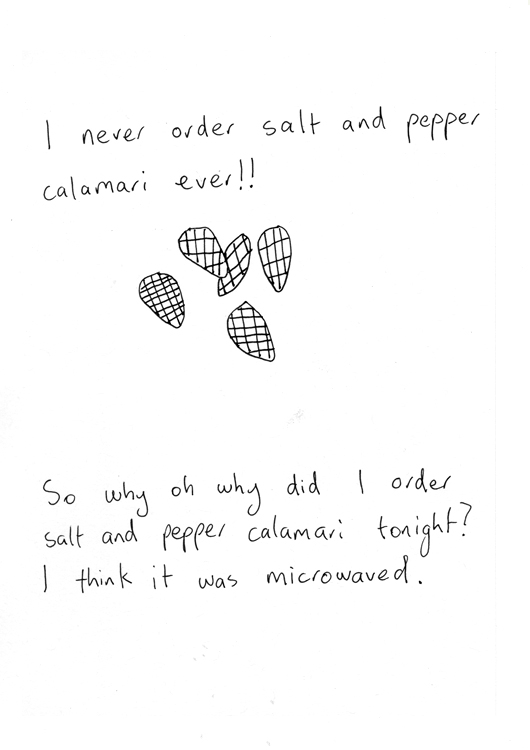 I never order salt and pepper
calamari ever!!
So why oh why did I order
salt and pepper calamari tonight?
I think it was microwaved.